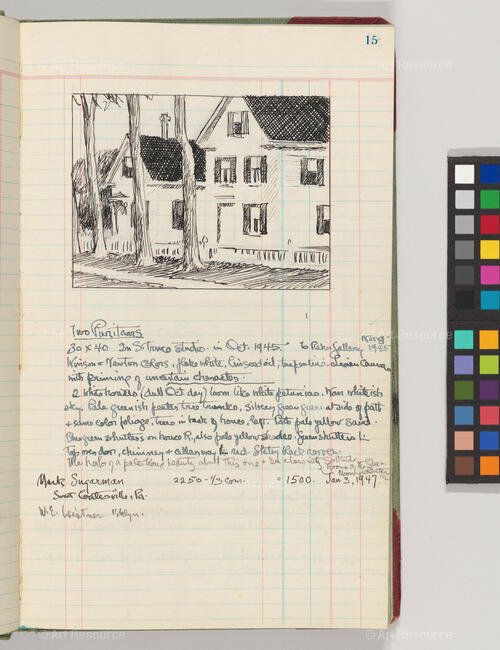 15
Two Puritans
30 x 40. In S. Truro studio. in Oct. 1945. To Rehn Gallery Nov 9 1945
Winsor & Newton colors, flake white, linseed oil, turpentine. Linen Canvas
with priming of uncertain character.
2 White houses (dull Oct day) loom like white petunias. Wan whiteish
sky. Pale greenish trunks, silvery green grass at side of path
+ same color foliage, trees in back of house, left. Path pale yellow sand.
Blue green shutters on house R, also pale yellow shades. Green shutters L.
Top door, chimney + red. Slaty black rooves.
The halo of a pale blond beauty about this one
Mark Sugarman 2250 - 1/3 com. = 1500. Jan 3, 1947
South Coatesville, Pa.
W.E. Leistner Bklyn.
© Art Resource
© Art Resource
© Art Resource
© Art Resource